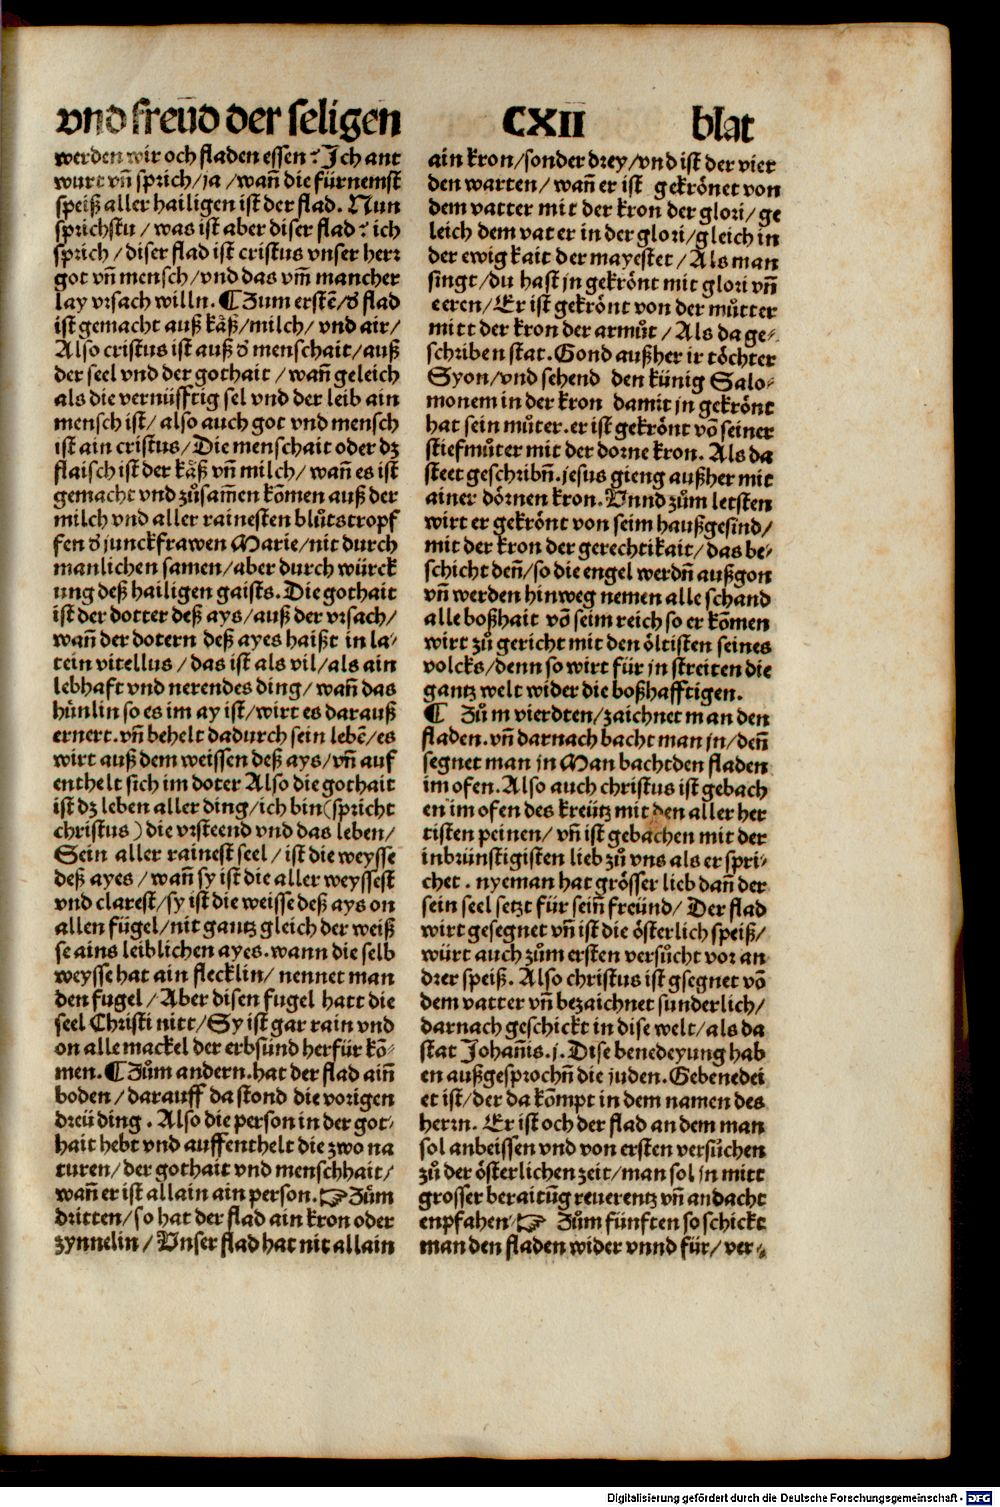 vnd freüd der seligen CXII blat
werden wir och fladen essen? Jch ant
wurt vn̄ sprich/ja/wan̄ die fürnemst
speiß aller hailigen ist der flad. Nun
sprichstu/was ist aber diser flad? ich
sprich/diser flad ist cristus vnser herr
got vn̄ mensch/vnd das vm̄ mancher
lay vrsach willn. ¶ Zum erstē/d̄ flad
ist gemacht auß käß/milch/vnd air/
Also cristus ist auß d̄ menschait/auß
der seel vnd der gothait/wan̄ geleich
als die vernüfftig sel vnd der leib ain
mensch ist/also auch got vnd mensch
ist ain cristus/Die menschait oder dz
flaisch ist der käß vn̄ milch/wan̄ es ist
gemacht vnd zůsam̄en kōmen auß der
milch vnd aller rainesten blůtstropf
fen d̄ junckfrawen Marie/nit durch
manlichen samen/aber durch würck
ung deß hailigen gaists. Die gothait
ist der dotter deß ays/auß der vrsach/
wan̄ der dotern deß ayes haißt in la-
tein vitellus/das ist als vil/als ain
lebhaft vnd nerendes ding/wan̄ das
hünlin so es im ay ist/wirt es darauß
ernert. vn̄ behelt dadurch sein lebē/es
wirt auß dem weissen deß ays/vn̄ auf
enthelt sich im doter Also die gothait
ist dz leben aller ding/ich bin (spricht
christus) die vrsteend vnd das leben/
Sein aller rainest seel/ist die weysse
deß ayes/wan̄ sy ist die aller weyssest
vnd clarest/sy ist die weisse deß ays on
allen fügel/nit gantz gleich der weiß
se ains leiblichen ayes. wann die selb
weysse hat ain flecklin/nennet man
den fugel/Aber disen fugel hatt die
seel Christi nitt/Sy ist gar rain vnd
on alle mackel der erbsünd herfür kō-
men. ¶ Zům andern. hat der flad ain̄
boden/darauff da stond die vorigen
dreü ding. Also die person in der got-
hait hebt vnd auffenthelt die zwo na
turen/der gothait vnd menschhait/
wan̄ er ist allain ain person. ☞ Zům
dritten/so hat der flad ain kron oder
zynnelin/Vnser flad hat nit allain
ain kron/sonder drey/vnd ist der vier
den warten/wan̄ er ist gekrönet von
dem vatter mit der kron der glori/ge
leich dem vater in der glori/gleich in
der ewigkait der mayestet/Als man
singt/du hast jn gekrönt mit glori vn̄
eeren/Er ist gekrönt von der můtter
mitt der kron der armůt/Als da ge-
schriben stat. Gond außher ir töchter
Syon/vnd sehend den künig Salo-
monem in der kron damit jn gekrönt
hat sein můter. er ist gekrönt vō seiner
stiefmůter mit der dorne kron. Als da
steet geschribn̄. jesus gieng außher mit
ainer dörnen kron. Vnnd zům letsten
wirt er gekrönt von seim haußgesīnd/
mit der kron der gerechtikait/das be-
schicht den̄/so die engel werdn̄ außgon
vn̄ werden hinweg nemen alle schand
alle boßhait vō seim reich so er kōmen
wirt zů gericht mit den öltisten seines
volcks/denn so wirt für jn streiten die
gantz welt wider die boßhafftigen.
¶ Zům vierdten/zaichnet man den
fladen. vn̄ darnach bacht man jn/den̄
segnet man jn Man bachtden fladen
im ofen. Also auch christus ist gebach
en im ofen des kreütz mit den aller her
tisten peinen/vn̄ ist gebachen mit der
inbrünstigisten lieb zů vns als er spri-
chet. nyeman hat grösser lieb dan̄ der
sein seel setzt für sein̄ freünd/Der flad
wirt gesegnet vn̄ ist die österlich speiß/
würt auch zům ersten versůcht vor an
drer speiß. Also christus ist gsegnet vō
dem vatter vn̄ bezaichnet sunderlich/
darnach geschickt in dise welt/als da
stat Johan̄is. j. Dise benedeyung hab
en außgesprochn̄ die juden. Gebenedei
et ist/der da kōmpt in dem namen des
herrn. Er ist och der flad an dem man
sol anbeissen vnd von ersten versůchen
zů der österlichen zeit/man sol jn mitt
grosser beraitūg reuerentz vn̄ andacht
enpfahen. ☞ Zům fünften so schickt
man den fladen wider vnnd für/ver-
Digitalisierung gefördert durch die Deutsche Forschungsgemeinschaft - DFG